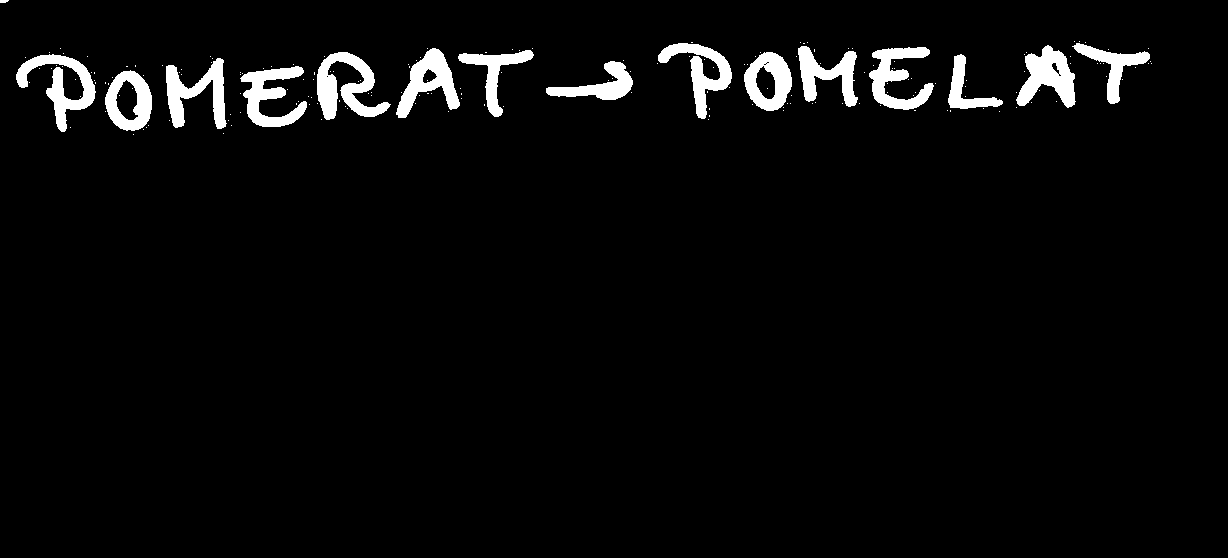 POMERAT → POMELAT